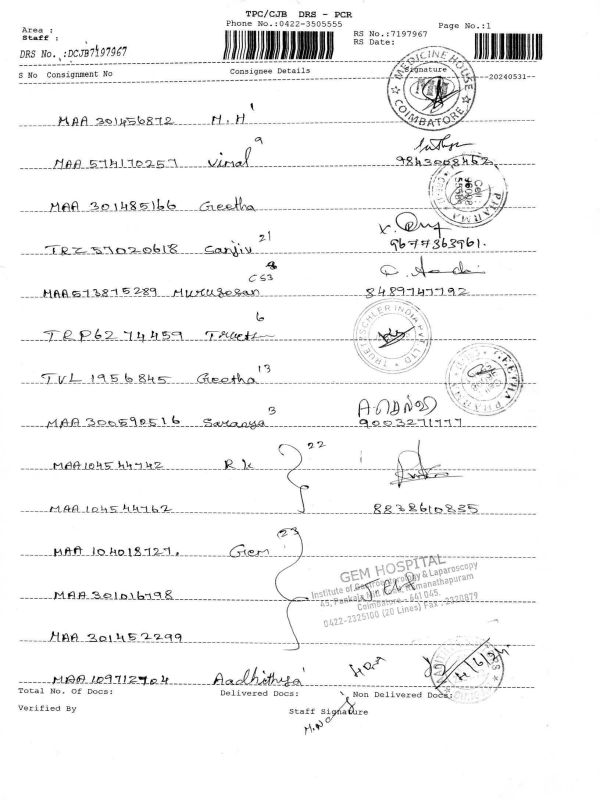 TPC/CJB DRS - PCR
Phone No.:0422-3505555
Page No.:1
Area :
Staff :
RS No.:7197967
RS Date:
DRS No. :DCJB7197967
S No Consignment No Consignee Details Signature
20240531
MEDICINE HOUSE
COIMBATORE
MAA 301456872 M.H 1
MAA 574170257 Vimal 9
9843008462
MAA 301485166 Geetha
PHARMA
TRZ 57020618 Sanjiv 21
9677363961.
CS3
MAA573875289 Murugesan
8489747792
TRP62 74459 6
TRUETZSCHLER INDIA PVT. LTD.
TVL 1956845 Geetha 13
GEETHA PHARMA
MAA 300590516 Saranya 3
9003271777
MAA104544742 R k 22
MAA104544762 8838610835
MAA 104018727. Gem 23
GEM HOSPITAL
Institute of Gastroenterology & Laparoscopy
45, Pankaja Mill Road, Ramanathapuram
Coimbatore - 641 045.
0422-2325100 (20 Lines) Fax : 2320879
MAA 301016798
MAA 301452299
MAA 109712704 Aadhithya
4/6/24
Total No. of Docs: Delivered Docs: Non Delivered Docs:
Verified By Staff Signature